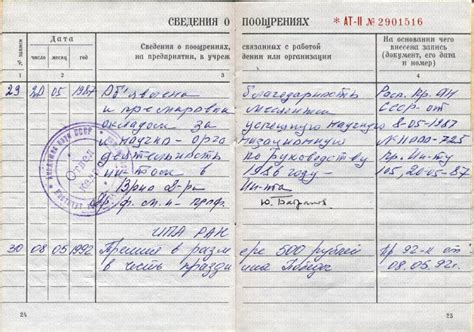 СВЕДЕНИЯ О ПООЩРЕНИЯХ
* АТ-II № 2901516
№ записи
Дата
число
месяц
год
Сведения о поощрениях, связанных с работой
на предприятии, в учреждении или организации
На основании чего
внесена запись
(документ, его дата
и номер)
1
2
3
4
29 20 05 1987 Объявлена благодарность Расп. Пр. АН
и премирован месячным СССР от
окладом за успешную научную 8-05-1987
и научно-орга низационную N 11000-725
деятельность по руководству Пр. Ин-ту
ин-том в 1986 году - 105, 20.05-87
Врио д-ра Ин-та
д. ф. м. н. проф.
ИПА РАН
30 08 05 1992 Премия в разм ере 500 рублей Пр 92-к от
в честь праздни Победы 08.05.92г.
Отдел кадров
24
25